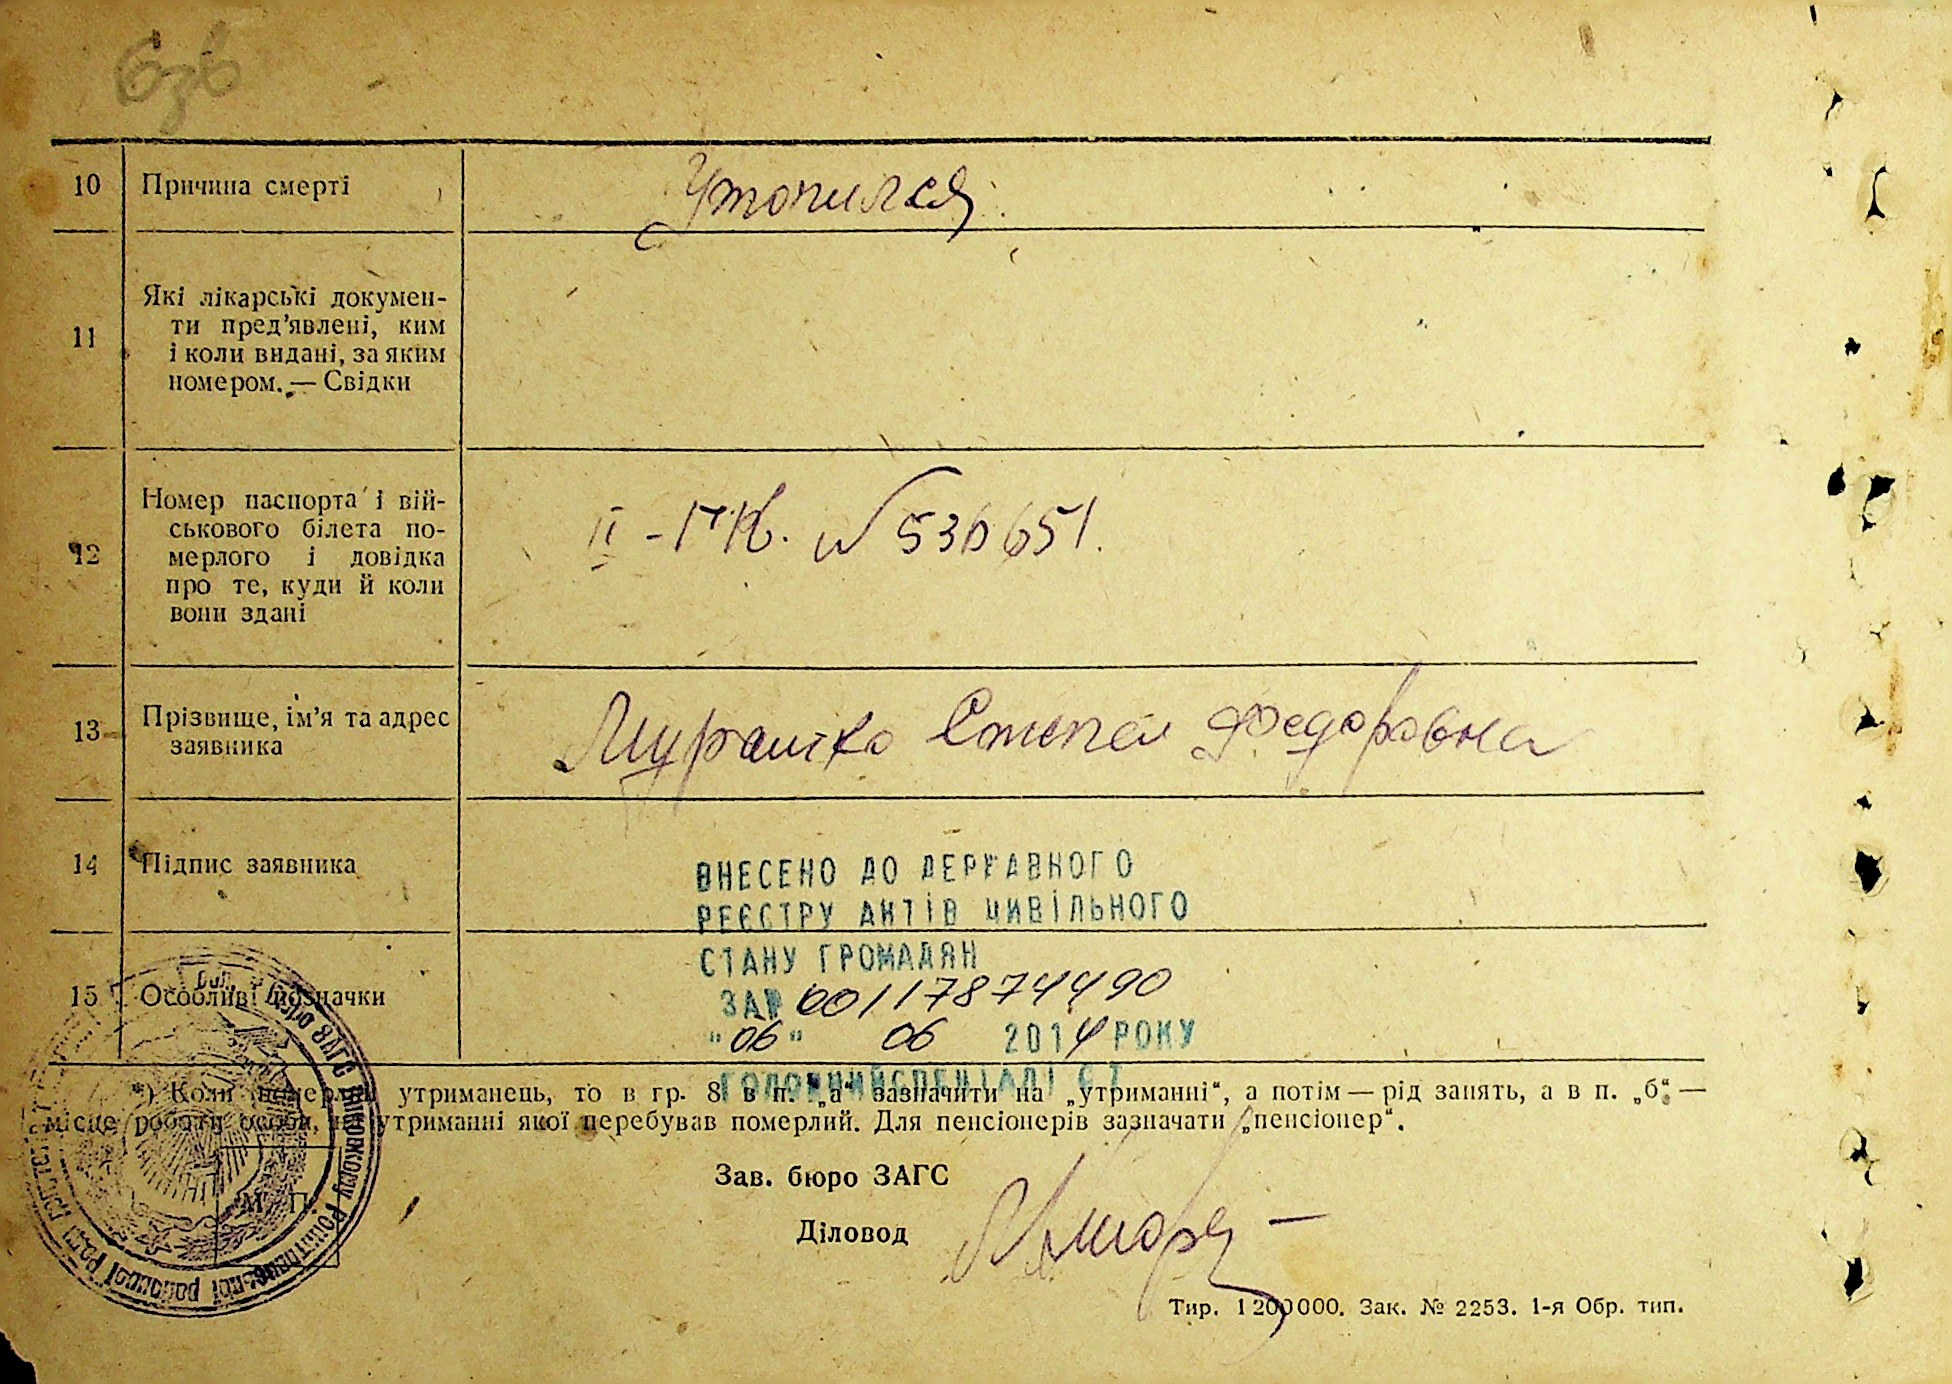 10 Причина смерті Утопился.
11 Які лікарські докумен-
ти пред’явлені, ким
і коли видані, за яким
номером. — Свідки
12 Номер паспорта і вій-
ськового білета по-
мерлого і довідка
про те, куди й коли
вони здані
II - ГК. № 536651.
13 Прізвище, ім’я та адрес
заявника
Мурашко Степа Федоровна
14 Підпис заявника
ВНЕСЕНО ДО ДЕРЖАВНОГО
РЕЄСТРУ АКТІВ ЦИВІЛЬНОГО
СТАНУ ГРОМАДЯН
15 Особливі позначки
ЗА № 00117874490
"06" 06 2014 РОКУ
ГОЛОВНИЙ СПЕЦІАЛІСТ
*) Коли померлий утриманець, то в гр. 8 в п. „а“ зазначити на „утриманні“, а потім — рід занять, а в п. „б“ —
місце роботи особи, на утриманні якої перебував померлий. Для пенсіонерів зазначати „пенсіонер“.
Зав. бюро ЗАГС
М. П.
Діловод
Тир. 1200000. Зак. № 2253. 1-я Обр. тип.